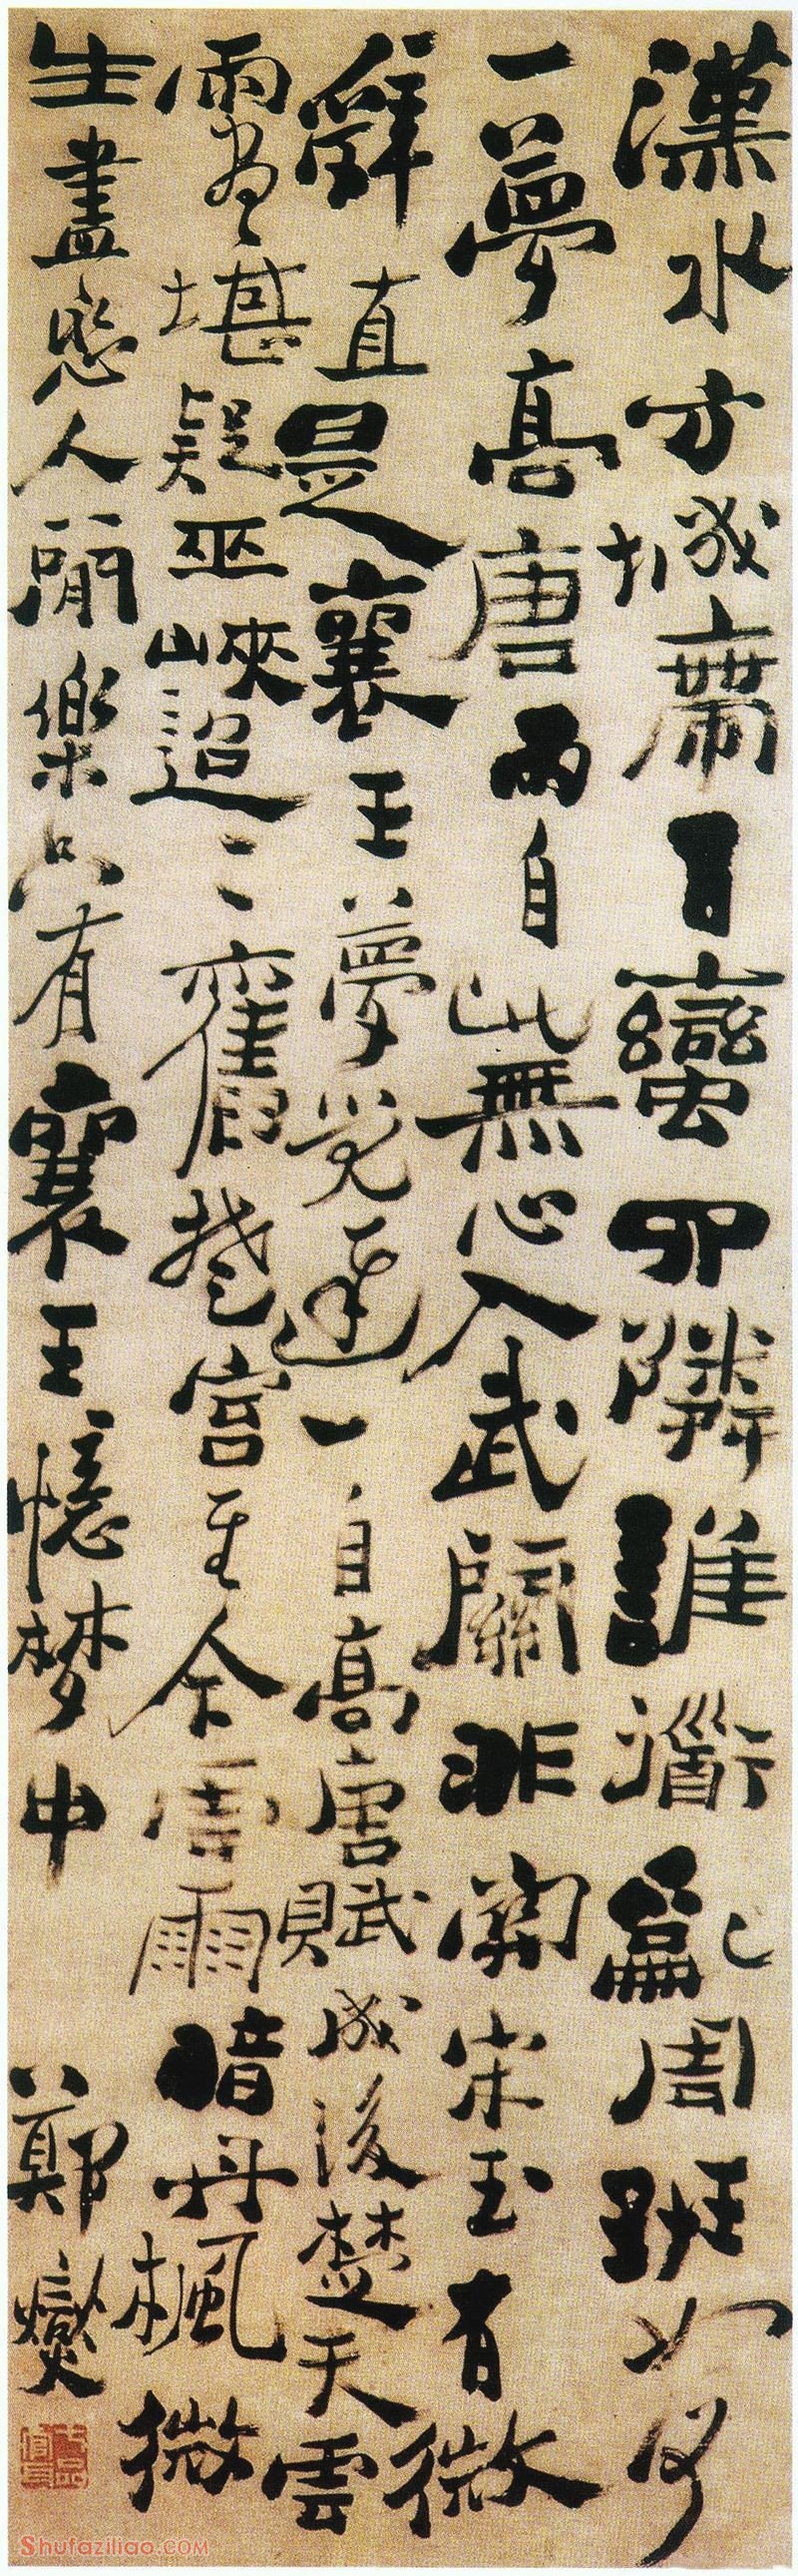 漢水方城帶百蠻四隣誰道亂周班如何
一夢高唐雨自此無心入武關非關宋玉有微
辭直是襄王夢覺遲一自高唐賦成後楚天雲
雨盡堪疑巫峽迢〻舊楚宮至今雲雨暗丹楓微
生盡戀人間樂只有襄王憶夢中 鄭燮
七品官耳
Shufaziliao.com